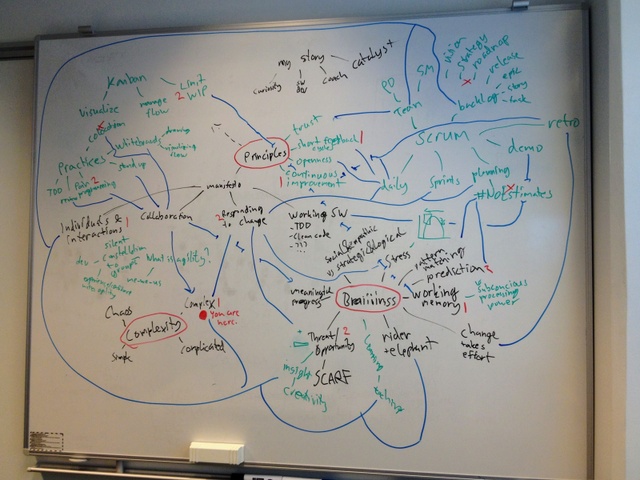 my story
catalyst
curiosity
SW
dev
coach
Kanban
Limit
2 WIP
visualize
manage
flow
colocation
whiteboard
drawing
stand up
Practices
TDD
Pair 2
programming
PO
SM
vision
strategy
roadmap
release
epic
story
task
backlog
Team
SCRUM
retro
demo
planning
daily
sprints
#NoEstimates
Principles
trust
short feedback 1
cycles
openness
continuous
1 improvement
manifesto
Individuals &
interactions
Collaboration
2 Responding
to change
Working SW
- TDD
- Clean code
- ???
silent
constellation
groups
What is agility?
social & empathic
vs strategic & logical
stress
pattern
matching
prediction
meaningful
progress
Brainiiinss
working
memory 1
subconscious
processing
power
Complex 1
you are
here.
Chaos
Complexity
Simple
complicated
Threat 2
Opportunity
SCARF
insight
creativity
rider
+elephant
change
takes
effort